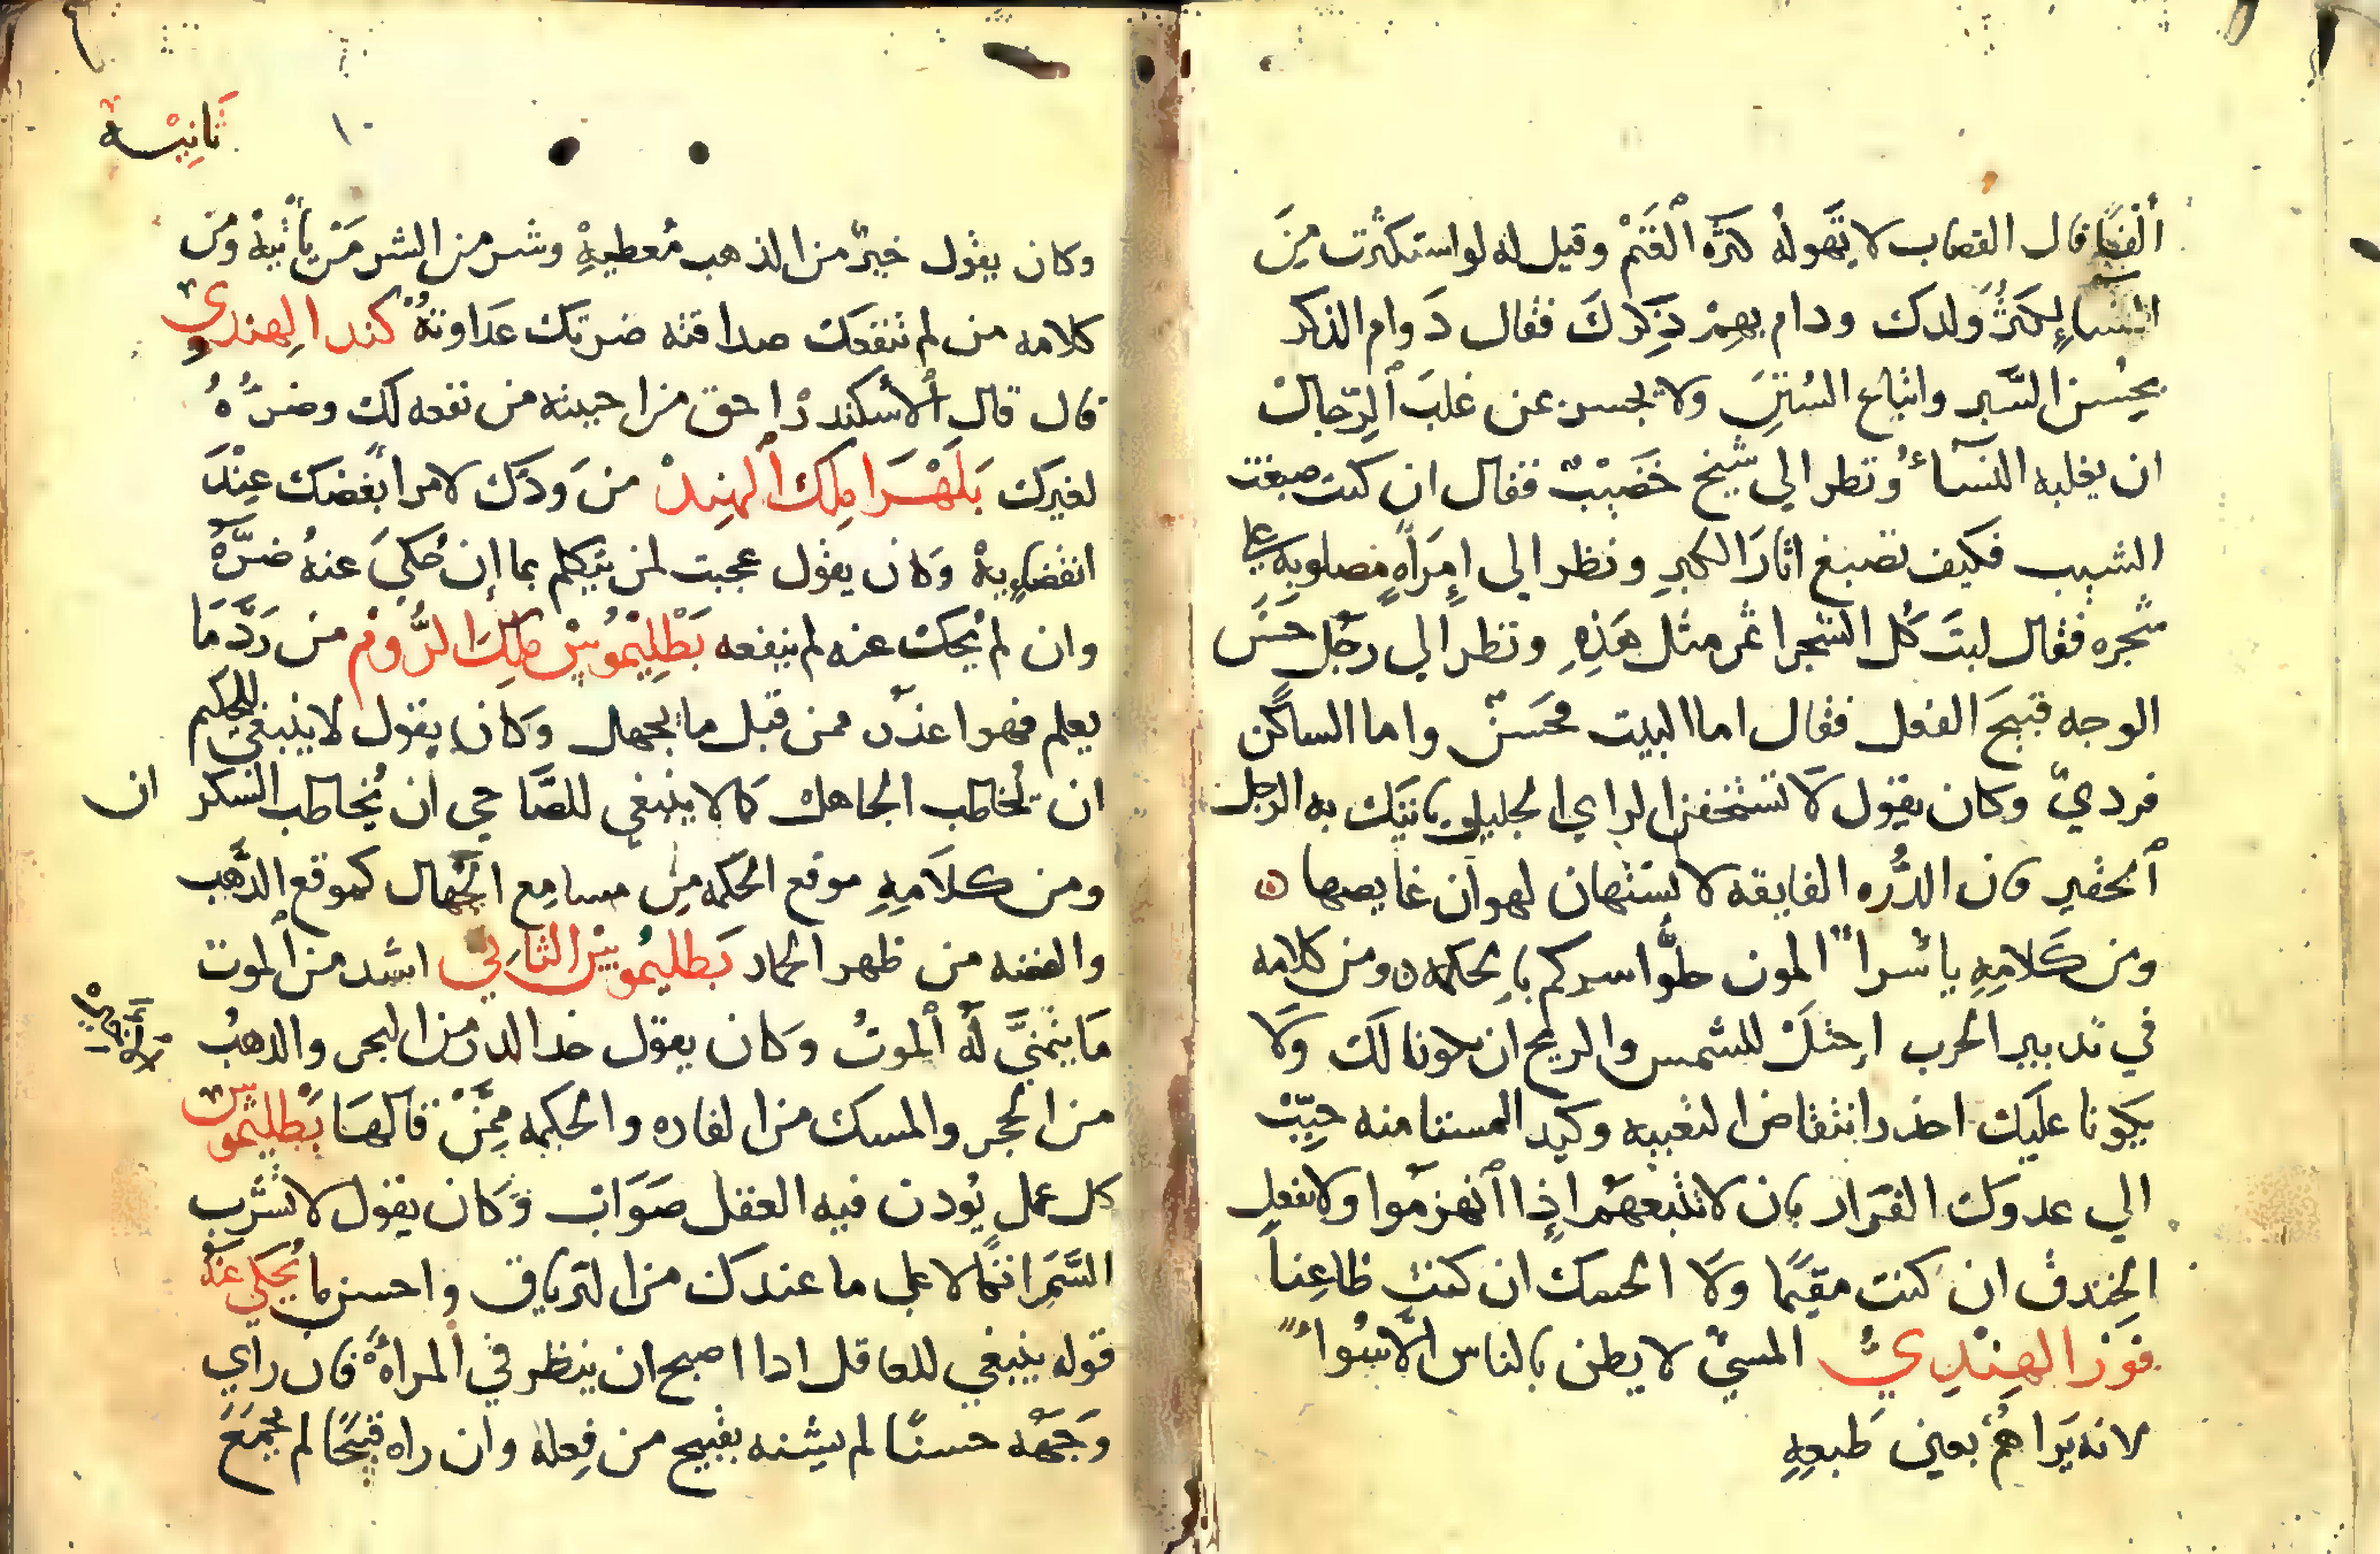 ألفًا قال القصاب لا يهوله كثرة الغَنَمْ وقيل له لو استكثرت مِنَ
النساءِ لكَثُرَ ولدك ودام بهِمْ ذِكرك فقال دَوام الذكر
بحُسن السَّير واتباع السُنَنِ ولا يحسن عن غلَبَ ٱلرّجال
ان يغلبه النسآءُ ونظر الي شيخ خَضَبَتْ فقال ان كنت صبغت
الشيب فكيف تصبغ اثارَ الكبرِ ونظر الى إمرَأةٍ مصلوبه على
شجره فقال ليتَ كُل الشجر اثمر مثل هَذِهِ ونظر الي رجُل حسَنَ
الوجه قبيحَ الفعل فقال اما البيت فحَسَنٌ واما الساكن
فرديّ وكان يقول لا تستخفن الراي الجليل ياتيك به الرجل
ٱلحقير فان الدُّره الفايقه لا تستهان لهوان غايصها ه
ومن كَلامِهِ يا أسرآ الموت حلّوا اسركم بالحكمه ه ومن كلامه
في تدبير الحرب احتَلْ للشمس والريح ان يكونا لك وَلا
يكونا عليك احذر انتقاض التعبيه وكيد المستامنه حبّبْ
الي عدوك الفرَار بان لا تتبعهمْ إذا ٱنهزمُوا ولا تغفل
الخِندق ان كنت مقيمًا ولا الحسك ان كنت ظاعِناً
فوز الهِنْدِيُّ المسيّ لا يظن بالناس الّا سُوأً
لانه يَراهُمْ بعين طبعِهِ
ثانِيَـه
١٠
وكان يقول خيرٌ من الذهب مُعطيهِ وشر من الشر مَن يأتيهْ ومن
كلامه من لم تنفعك صداقته ضرتك عدَاوتهُ كند الهِندي و
قال قال ٱلأسكندرْ احق من احببته من نفعه لك وضرُّهُ
لغيرك بَلَهْرَا مِلك ٱلهِندْ من وَدّك لامر ابغَضك عِنْدَ
انقضاءِيهْ وَكان يقول عجبت لمن يتكلم بما إن حُكيَ عنهُ ضرَّهُ
وان لم يُحك عنه لم ينفعه بَطْلِيْمُوسْ مَلِكَ الرُّومْ من رَدَّ مَا
يعلم فهو اعذر ممن قبل ما يجهل وكان يقول لا ينبغي للحكيم
ان يُخاطب الجاهل كما لا ينبغي للصَّاحي ان يُخاطب السكر ان
ومن كلَامِهِ موقع الحكمه مِن مسامِع الجُهال كموقع الذَّهب
والفضه من ظهر الحمار بَطليموسْ الثاني اشد من ٱلموت
مَا يتمنَّي لَهُ ٱلموتُ وكان يقول خد الدر من البحر والدهبُ
من الحجر والمسك من الفاره والحكمه مِمَّنْ قالهَا بَطْليمُوس
كل عمل يُودن فيه العقل صَوَابْ وَكان يقول لا تشرب
السَّم اتكالا على ما عندك من الترياق واحسن ما يُحكي عَنهُ
قوله ينبغي للعاقل ادا اصبح ان ينظر في ٱلمراةُ فان راي
وَجهَهُ حسنًا لم يشنه بقبيح من فِعله وان راه قبيحًا لم يجمَعَ